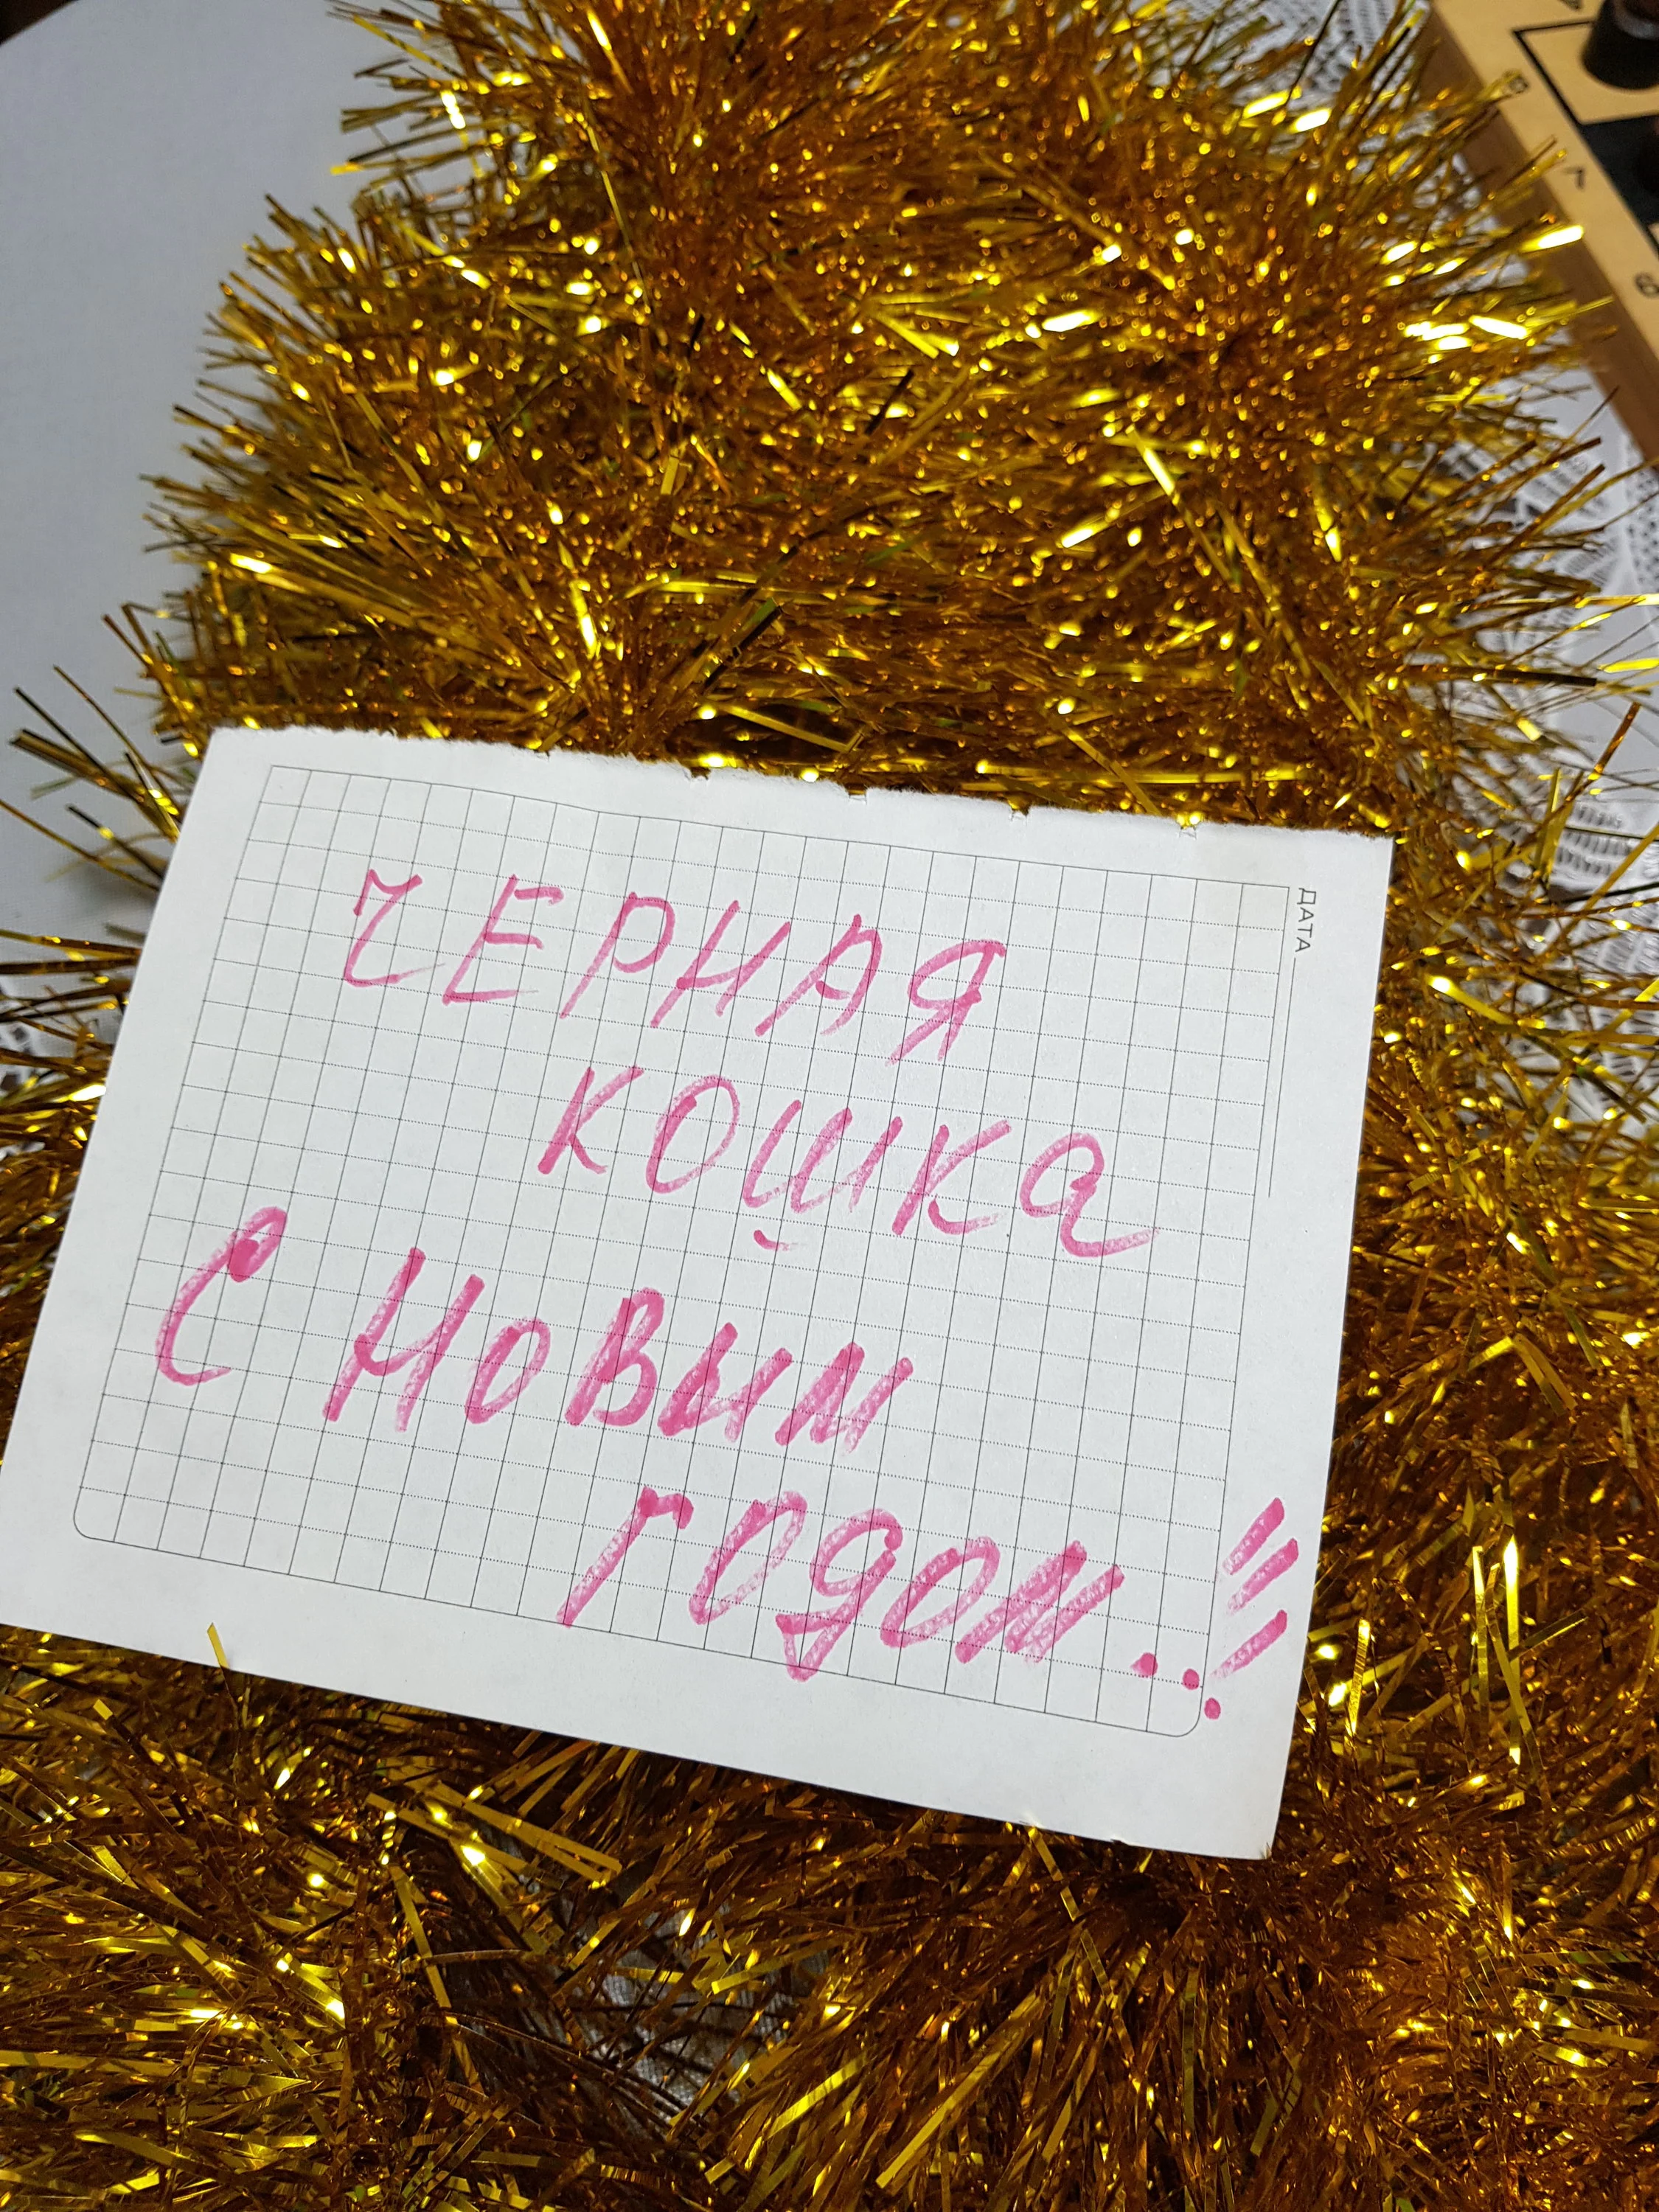 ДАТА
ЧЕРНАЯ
КОШКА
С НОВЫМ
ГОДОМ..!!!
6
7
8